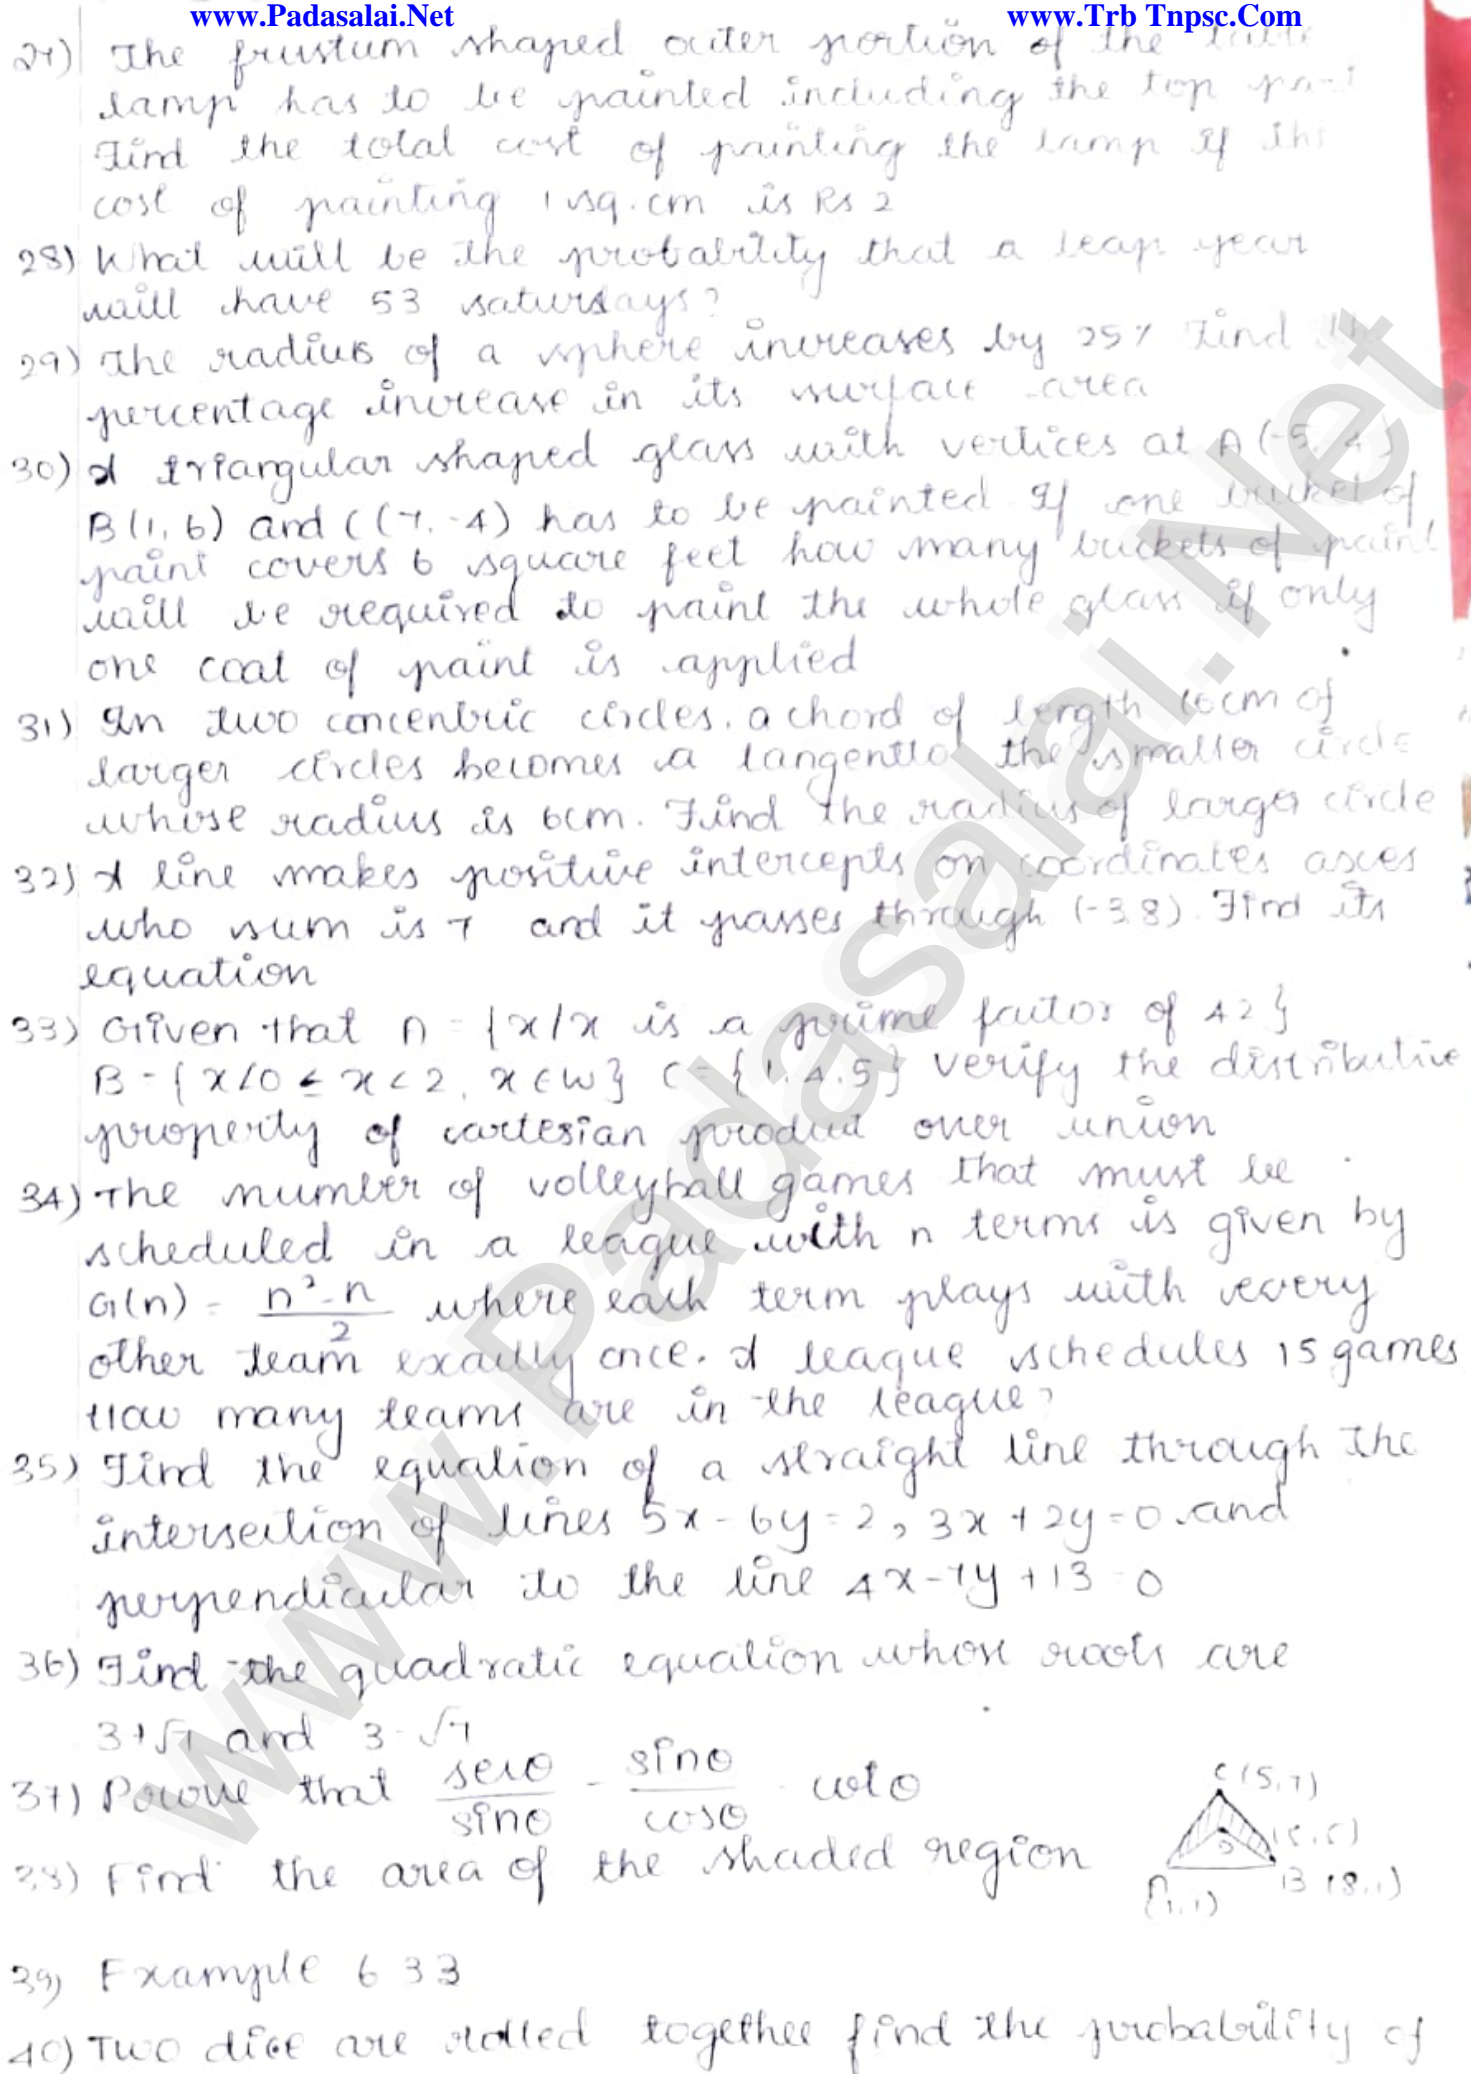 www.Padasalai.Net www.Trb Tnpsc.Com
27) The frustum shaped outer portion of the table
lamp has to be painted including the top part
Find the total cost of painting the lamp if the
cost of painting 1 sq.cm is Rs 2
28) What will be the probability that a leap year
will have 53 saturdays?
29) The radius of a sphere increases by 25% Find the
percentage increase in its surface area
30) A triangular shaped glass with vertices at A(-5,-4)
B(1,6) and C(7,-4) has to be painted. If one bucket of
paint covers 6 square feet how many buckets of paint
will be required to paint the whole glass if only
one coat of paint is applied
31) In two concentric circles, a chord of length 16cm of
larger circles becomes a tangent to the smaller circle
whose radius is 6cm. Find the radius of larger circle
32) A line makes positive intercepts on coordinates axes
who sum is 7 and it passes through (-3,8). Find its
equation
33) Given that A = {x/x is a prime factor of 42}
B = {x/0 ≤ x < 2, x ∈ W} C = {1,4,5} verify the distributive
property of cartesian product over union
34) The number of volleyball games that must be
scheduled in a league with n terms is given by
G(n) = n²-n / 2 where each term plays with every
other team exactly once. A league schedules 15 games
How many teams are in the league?
35) Find the equation of a straight line through the
intersection of lines 5x - 6y = 2, 3x + 2y = 0 and
perpendicular to the line 4x - 7y + 13 = 0
36) Find the quadratic equation whose roots are
3+√7 and 3-√7
37) Prove that secθ/sinθ - sinθ/cosθ = cotθ
38) Find the area of the shaded region
C (5,7)
D
B (8,1)
A
(1,1)
39) Example 6 33
40) Two dice are rolled together find the probability of
www.Padasalai.Net